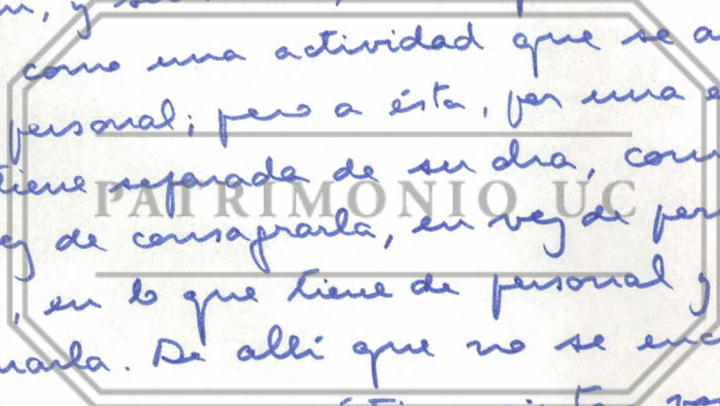 como una actividad que se a
personal; pero a ésta, por una e
tiene separada de su dra, com
ez de consagrarla, en vez de per
, en lo que tiene de personal y
narla. De alli que no se enc
PATRIMONIO UC